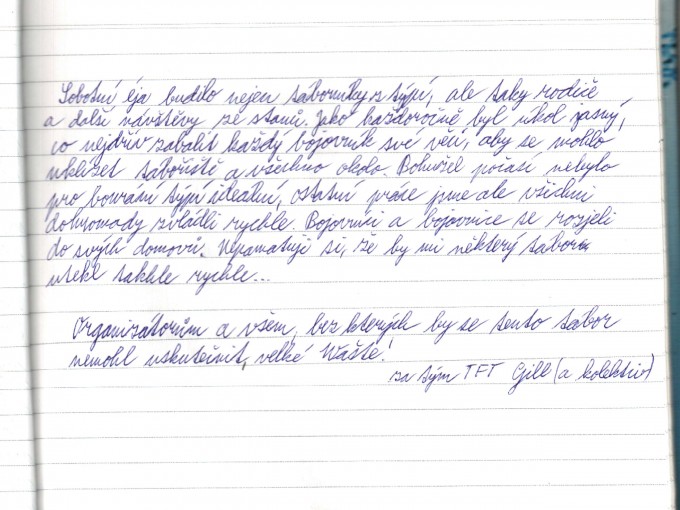 Sobotní éja budilo nejen táborníky z týpí, ale taky rodiče
a další návštěvy ze stanů. Jako každoročně byl úkol jasný,
co nejdřív zabalit každý bojovník své věci, aby se mohlo
uklízet tábořiště a všechno okolo. Bohužel počasí nebylo
pro bourání týpí ideální, ostatní práce jsme ale všichni
dohromady zvládli rychle. Bojovníci a bojovnice se rozjeli
do svých domovů. Nepamatuji si, že by mi některý tábor
utekl takhle rychle...
Organizátorům a všem, bez kterých by se tento tábor
nemohl uskutečnit, velké Wašté!
za tým TFT Gill (a kolektiv)